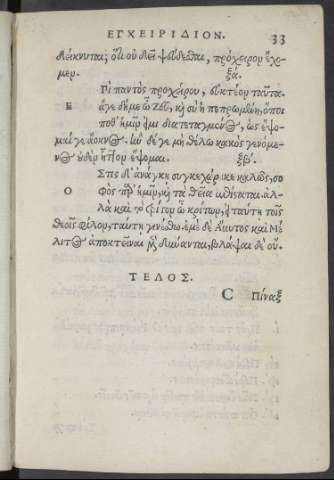 ΕΓΧΕΙΡΙΔΙΟΝ. 33
δείκνυται; ὅτι οὐ δεῖ ψεύδεσθαι, πρόχειρον ἔχο-
μεν. ξα΄.
Ἐπὶ παντὸς προχείρου, εὐκτέον ταῦτα.
Ε ἄγε δή με ὦ ζεῦ, καὶ σὺ ἡ πεπρωμένη, ὅποι
ποθ' ὑμῖν εἰμι διατεταγμένος, ὡς ἕψο-
μαί γε ἄοκνος. ἐὰν δέ γε μὴ θέλω κακὸς γενόμεν-
ος οὐδὲν ἧττον ἕψομαι. ξβ΄.
Ὅστις δ' ἀνάγκῃ συγκεχώρηκε καλῶς, σο
Ο φὸς παρ' ἡμῖν, καὶ τὰ θεῖα ἐπίσταται. ἀλ-
λὰ καὶ τὸ τρίτον ὦ κρίτων, εἰ ταύτῃ τοῖς
θεοῖς φίλον, ταύτῃ γενέσθω. ἐμὲ δὲ Ἄνυτος καὶ Μέ
λιτος ἀποκτεῖναι μὲν δύνανται, βλάψαι δὲ οὔ.
ΤΕΛΟΣ.
C Πίναξ